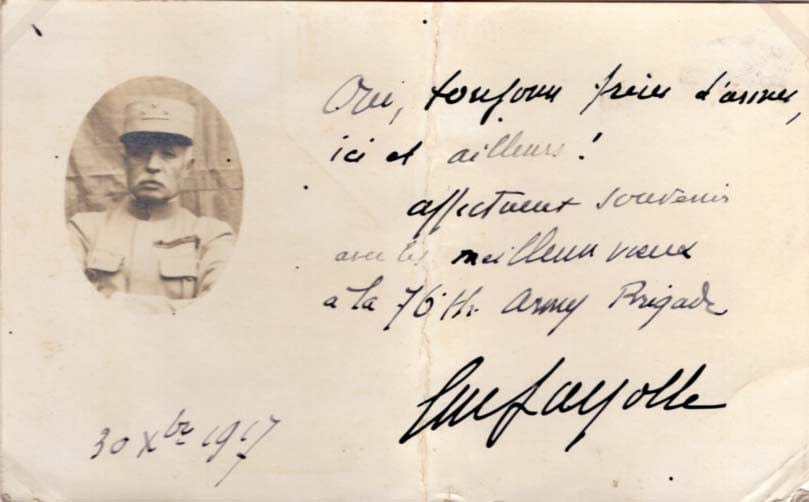 Oui, toujours frères d'armes,
ici et ailleurs !
affectueux souvenir
avec les meilleurs vœux
à la 76th Army Brigade
Fayolle
30 Xbre 1917